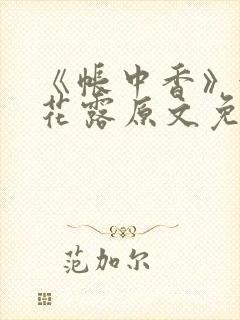 《帐中香》
花露原文免
范加尔